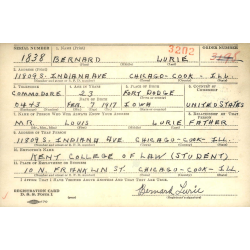 SERIAL NUMBER 1. NAME (Print) ORDER NUMBER
1838 BERNARD LURIE 3202
(First) (Middle) (Last)
2. ADDRESS (Print)
11809 S. INDIANA AVE CHICAGO - COOK - ILL.
3. TELEPHONE 4. AGE IN YEARS 5. PLACE OF BIRTH 6. COUNTRY OF CITIZENSHIP
COMMODORE 23 FORT DODGE
DATE OF BIRTH
0443 FEB. 7 1917 IOWA UNITED STATES
7. NAME OF PERSON WHO WILL ALWAYS KNOW YOUR ADDRESS 8. RELATIONSHIP OF THAT PERSON
MR. LOUIS LURIE FATHER
9. ADDRESS OF THAT PERSON
11809 S. INDIANA AVE CHICAGO - COOK - ILL.
10. EMPLOYER'S NAME
KENT COLLEGE OF LAW (STUDENT)
11. PLACE OF EMPLOYMENT OR BUSINESS
10 N. FRANKLIN ST. CHICAGO - COOK - ILL.
I AFFIRM THAT I HAVE VERIFIED ABOVE ANSWERS AND THAT THEY ARE TRUE.
REGISTRATION CARD
D. S. S. FORM 1
Bernard Lurie